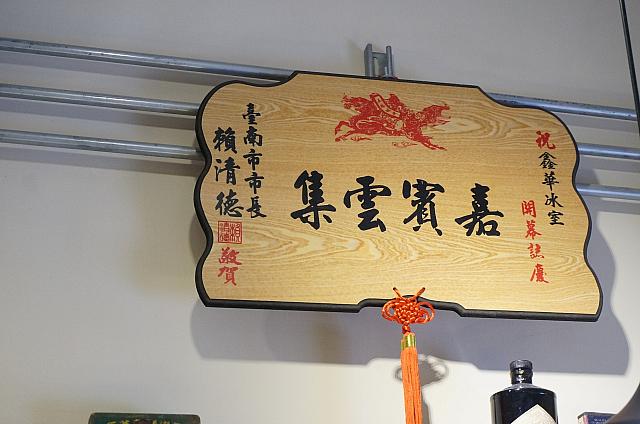 祝
鑫華冰室
開幕誌慶
嘉賓雲集
臺南市市長
賴清德
敬賀